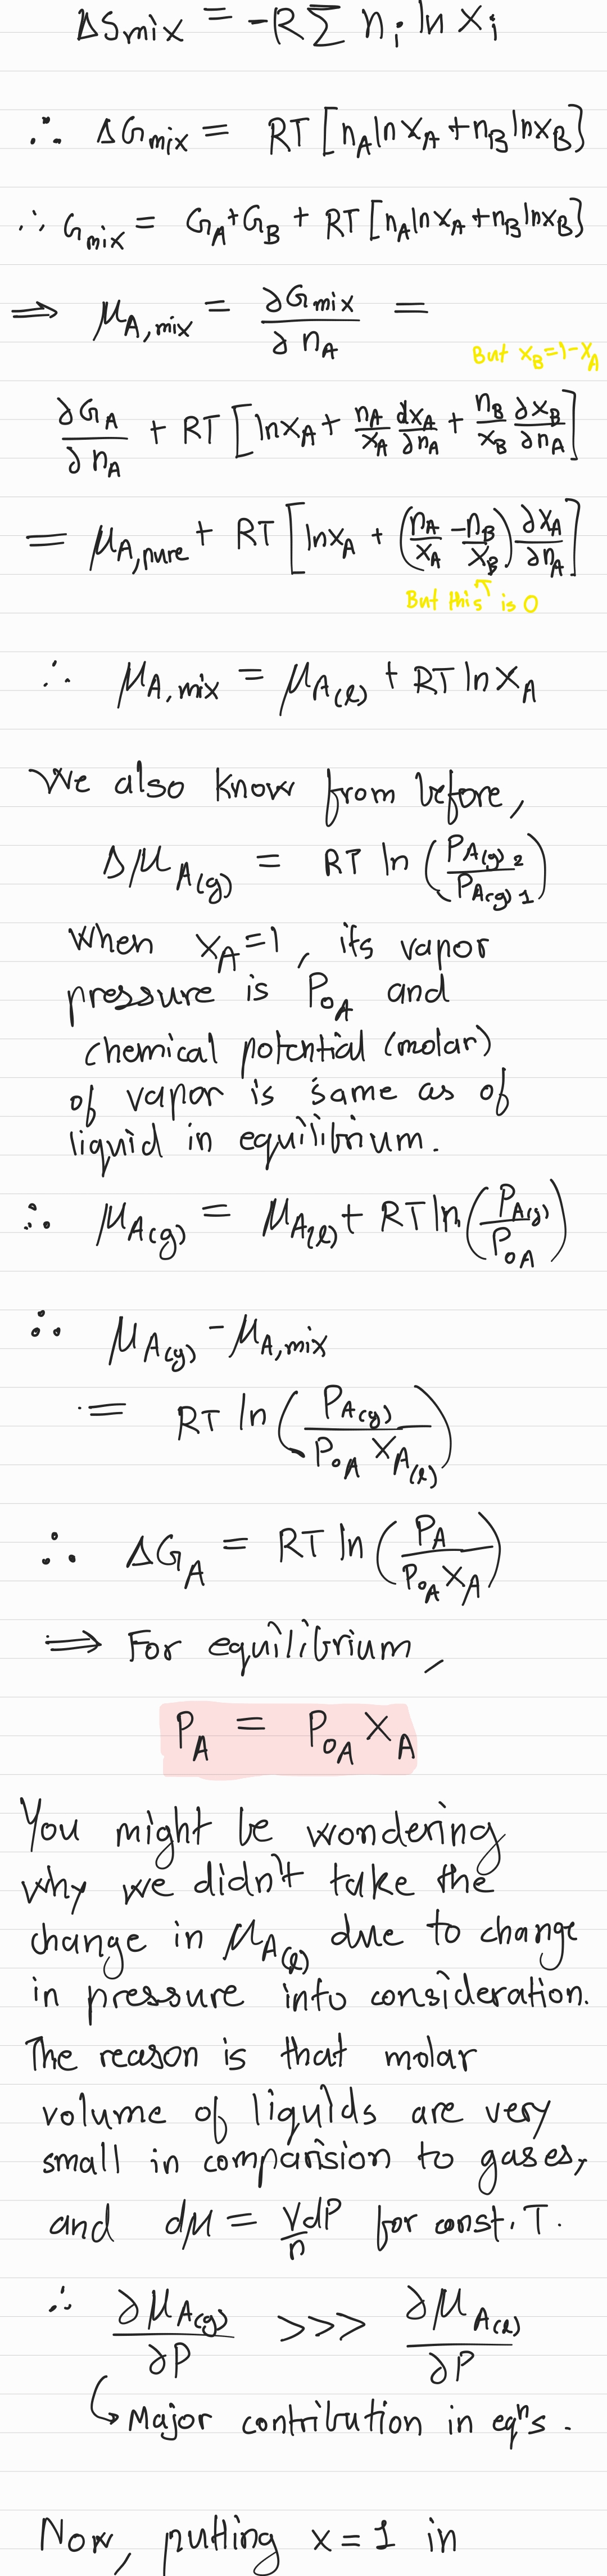 ΔSmix = -R∑ nᵢ ln xᵢ
∴ ΔGmix = RT [nA ln xA + nB ln xB]
∴ Gmix = GA + GB + RT [nA ln xA + nB ln xB]
⇒ μA,mix = ∂Gmix/∂nA =
But xB = 1 - xA
∂GA/∂nA + RT [ln xA + nA/xA dxA/∂nA + nB/xB ∂xB/∂nA]
= μA,pure + RT [ln xA + (nA/xA - nB/xB) ∂xA/∂nA]
But this ↑ is 0
∴ μA,mix = μA(l) + RT ln xA
We also know from before,
ΔμA(g) = RT ln (PA(g)2/PA(g)1)
When xA = 1, its vapor
pressure is P₀A and
chemical potential (molar)
of vapor is same as of
liquid in equilibrium.
∴ μA(g) = μA(l) + RT ln (PA(g)/P₀A)
∴ μA(g) - μA,mix
= RT ln (PA(g)/P₀A XA(l))
∴ ΔGA = RT ln (PA/P₀A XA)
⇒ For equilibrium,
PA = P₀A XA
You might be wondering
why we didn't take the
change in μA(l) due to change
in pressure into consideration.
The reason is that molar
volume of liquids are very
small in comparision to gases,
and dμ = V/n dP for const. T.
∴ ∂μA(g)/∂P >>> ∂μA(l)/∂P
↳ Major contribution in eqⁿs.
Now, putting x = 1 in